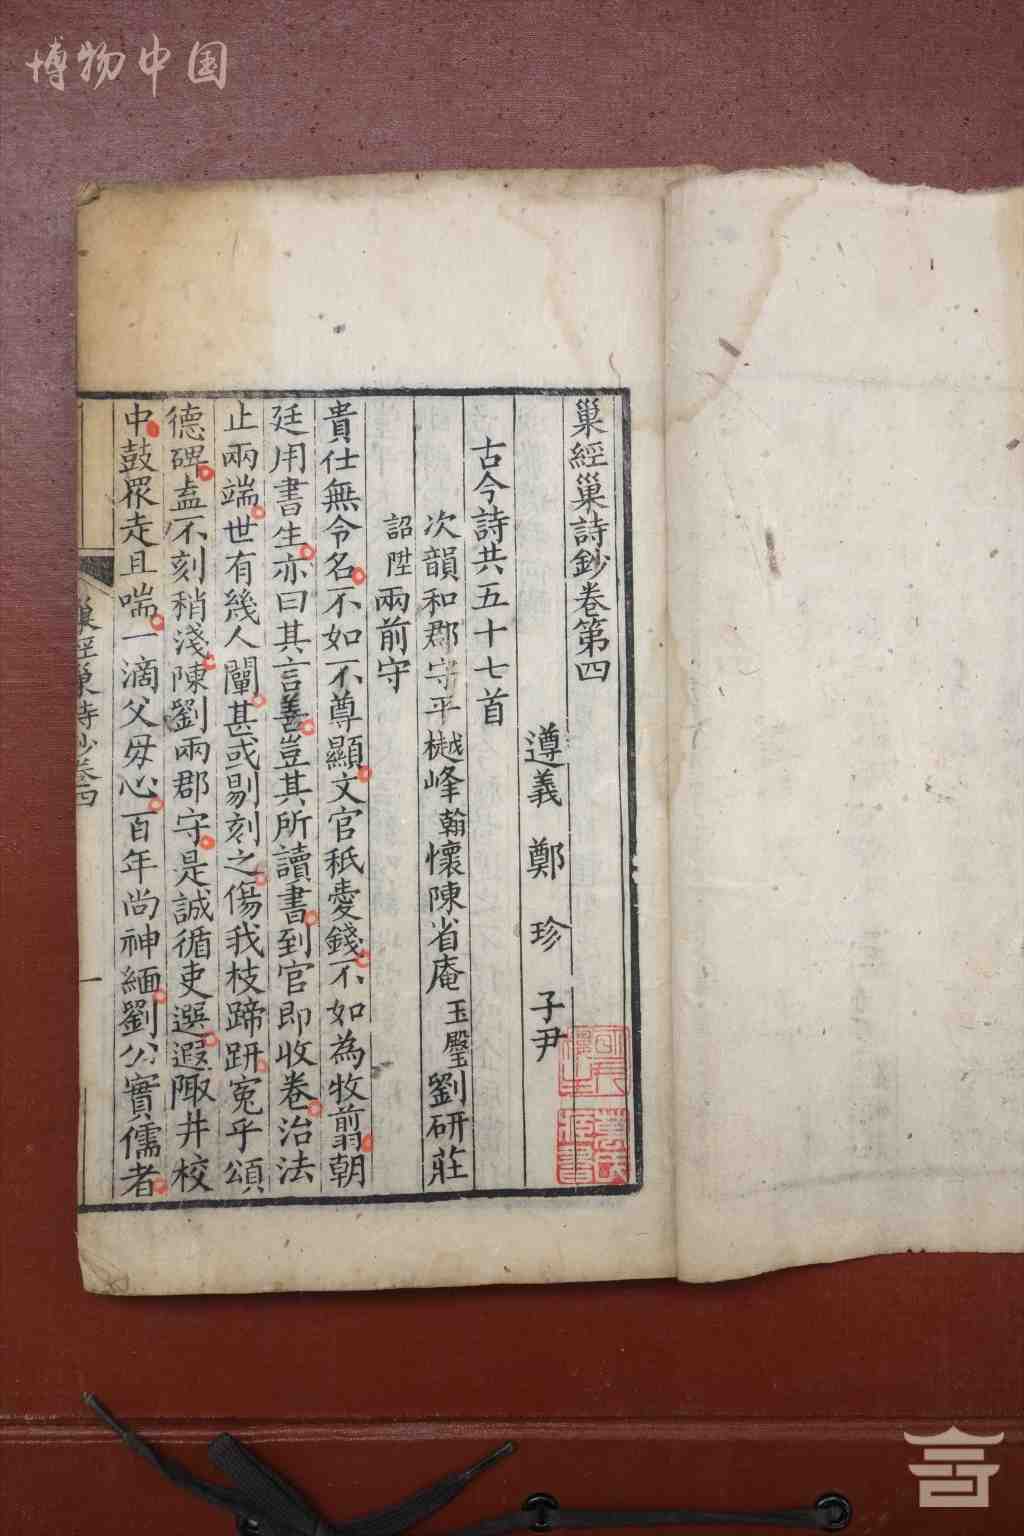 博物中国
巢經巢詩鈔卷第四
遵義 鄭 珍 子尹
古今詩共五十七首
次韻和郡守平樾峰翰懷陳省庵玉𡐨劉研莊
詔陞兩前守
貴仕無令名不如不尊顯文官秖愛錢不如為牧翦朝
廷用書生亦曰其言善豈其所讀書到官即收卷治法
止兩端世有幾人闡甚或剔刻之傷我枝蹄趼寃乎頌
德碑盍不刻稍淺陳劉兩郡守是誠循吏選遐陬井校
中鼓眾走且喘一滴父母心百年尚神緬劉公實儒者
巢經巢詩鈔卷四
一